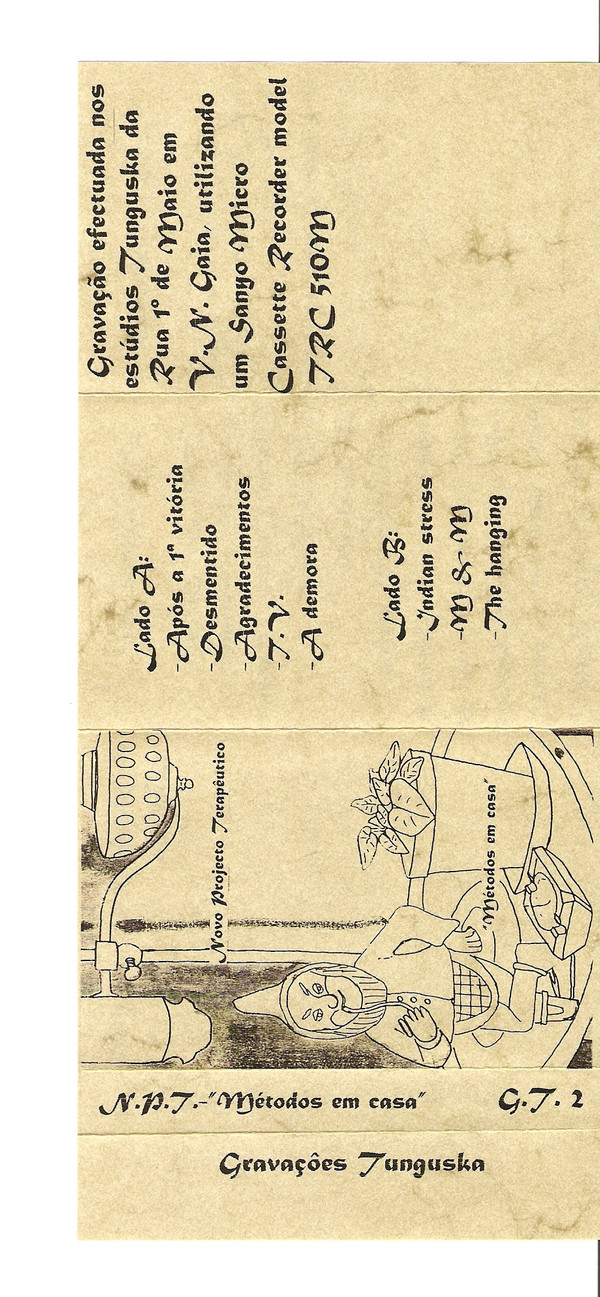 Gravação efectuada nos
estúdios Tunguska da
Rua 1º de Maio em
V.N. Gaia, utilizando
um Sanyo Micro
Cassette Recorder model
TRC 510M
Lado A:
-Após a 1ª vitória
-Desmentido
-Agradecimentos
-T.V.
-A demora
Lado B:
-Indian stress
-M & M
-The hanging
Novo Projecto Terapêutico
"Métodos em casa"
N.P.T.-"Métodos em casa" G.T. 2
Gravações Tunguska